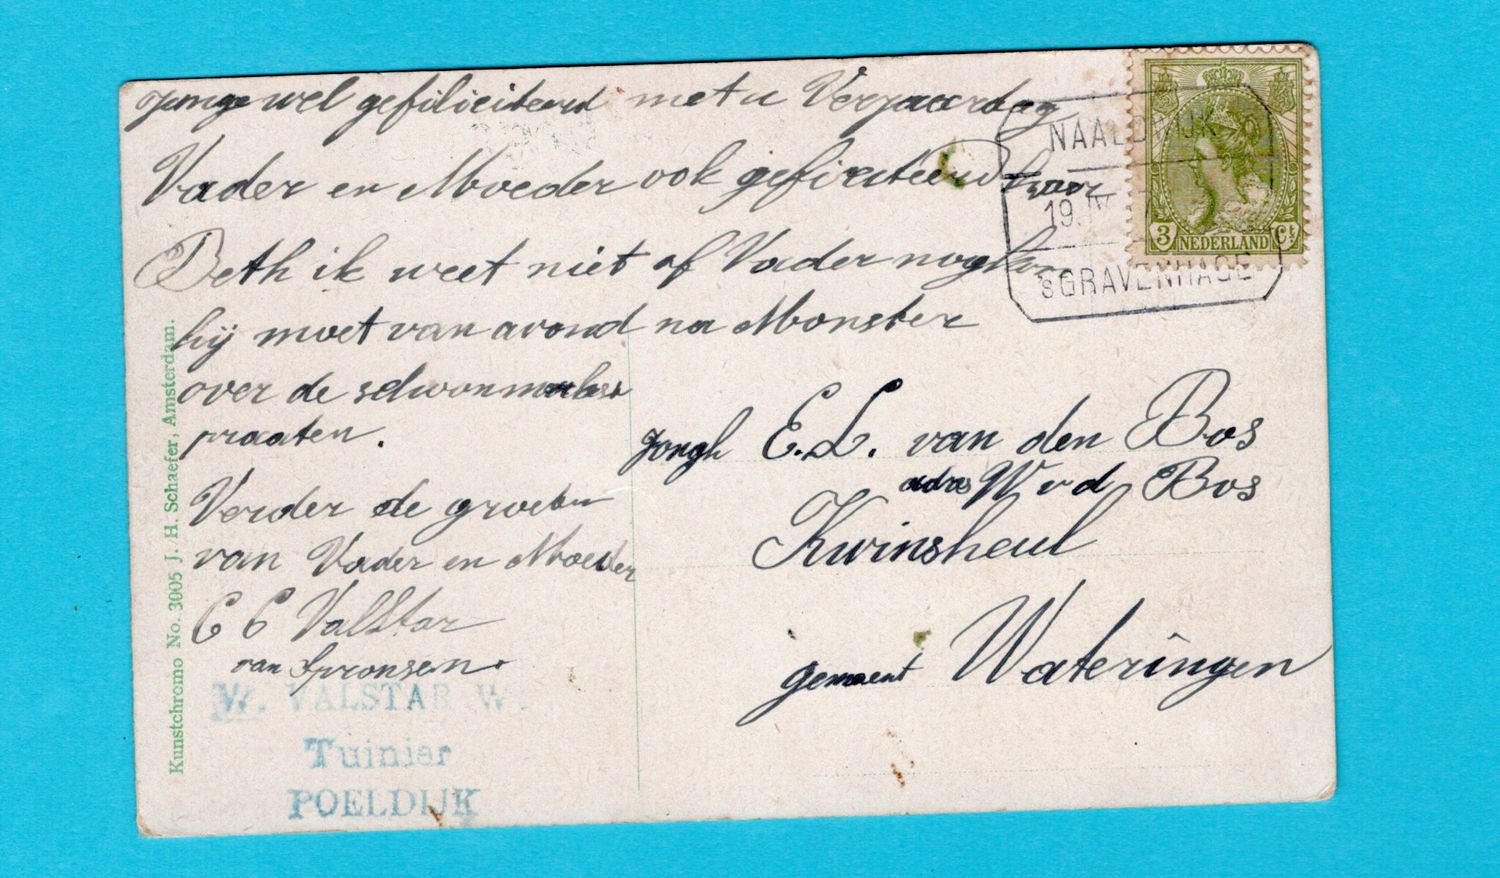 Jonge wel gefiliciteerd met u Verjaardag
Vader en Moeder ook gefiliciteerd voor
Beth ik weet niet of Vader nog
hij moet van avond na Monster
over de
praaten.
Verder de groeten
van Vader en Moeder
C C Valstar
van Spronsen.
W. VALSTAR W.
Tuinier
POELDIJK
Kunstchromo No. 3005 J. H. Schaefer, Amsterdam.
NAALDWIJK
19. IV
SGRAVENHAGE
3 NEDERLAND Ct
Jongh E. L. van den Bos
adres W v d Bos
Kwinsheul
gemeent Wateringen